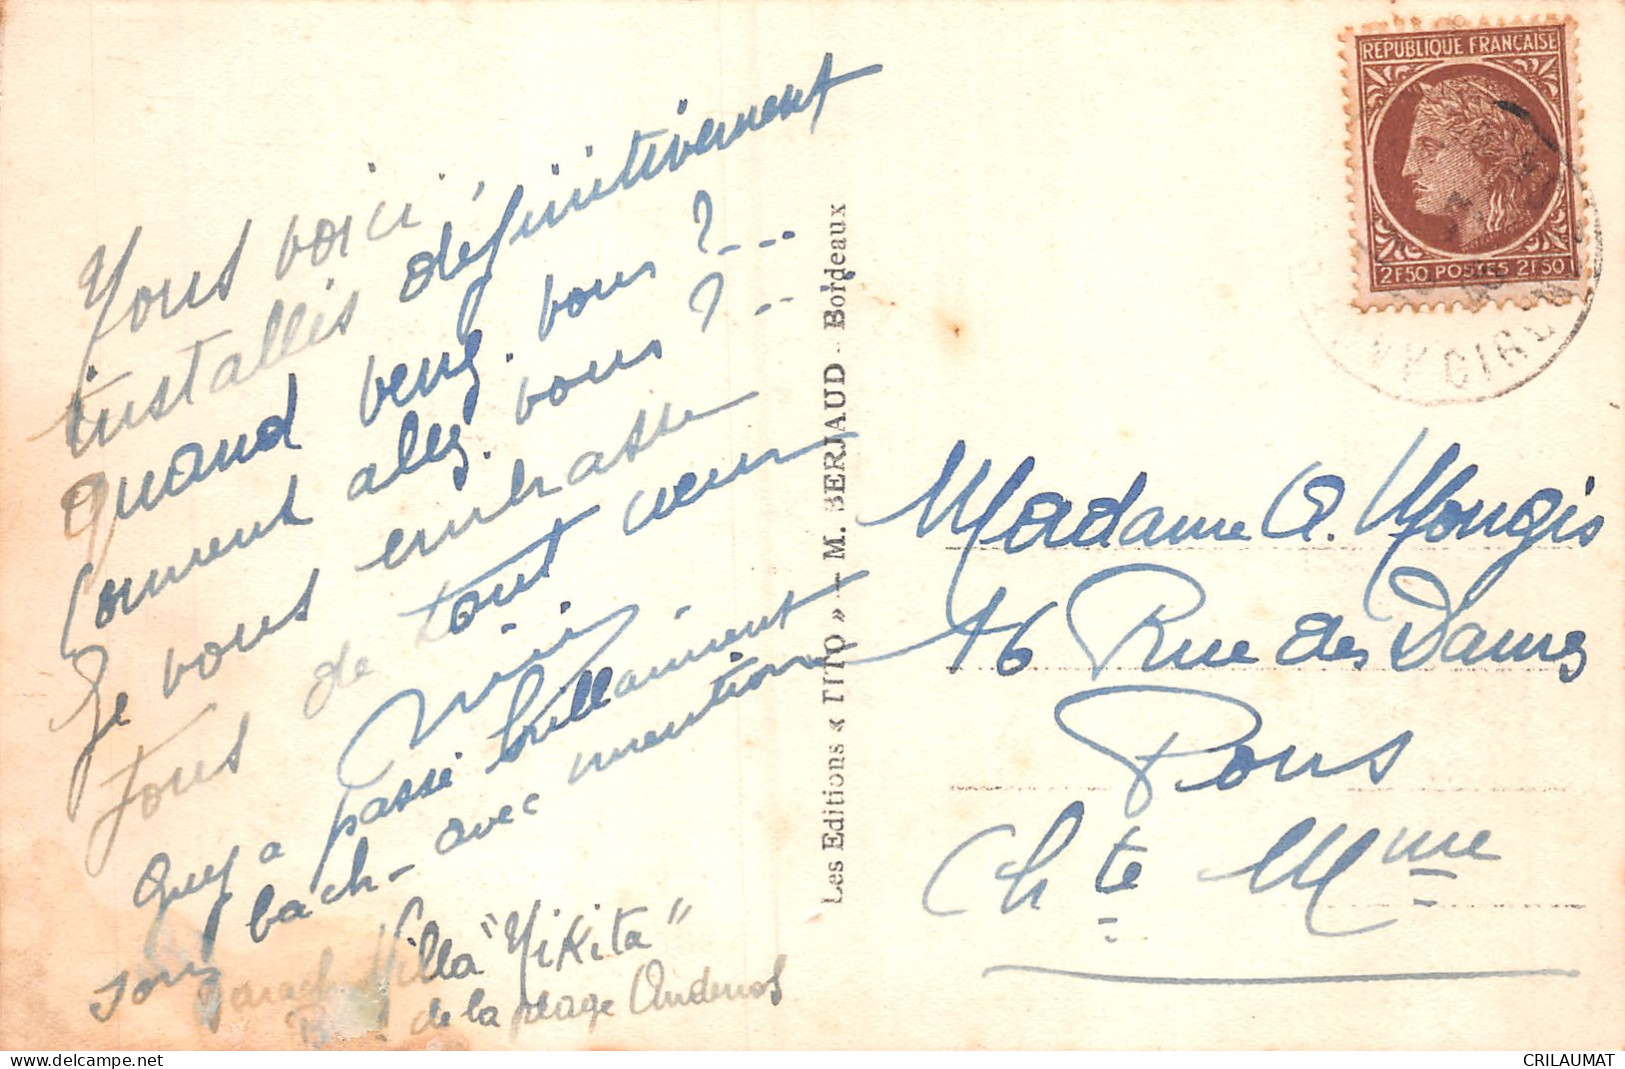 Nous voici
installés définitivement
Quand venez-vous ?...
Comment alez-vous ?...
Je vous embrasse
tous de tout cœur
a passé brillamment
son bach - avec mention
Villa "Nikita"
de la plage Andernos
Les Editions « TITO » — M. BERJAUD - Bordeaux
REPUBLIQUE FRANÇAISE
2F50 POSTES 2F50
GIRO
Madame A. Mongis
16 Rue des Dames
Pons
Chte Mme
CRILAUMAT